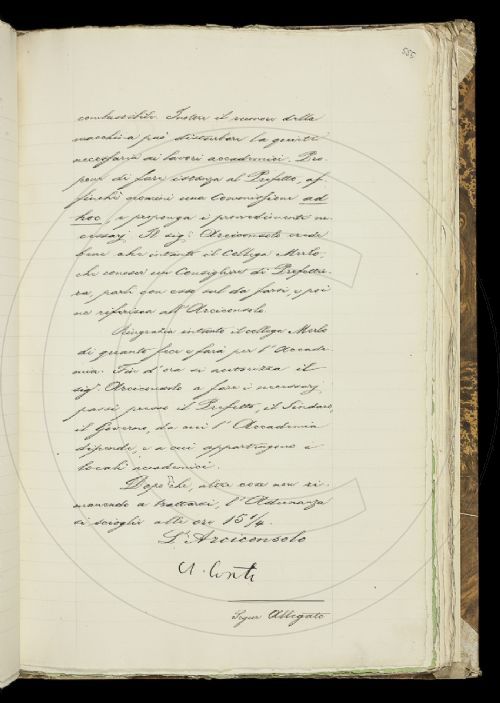 555
combustibile. Inoltre il rumore della
macchina può disturbare la quiete
necessaria ai lavori accademici. Pro-
pone di fare istanza al Prefetto, af-
finchè nomini una Commissione ad
hoc, e proponga i provvedimenti ne-
cessarj. Il sig: Arciconsolo crede
bene che intanto il Collega Merlo,
che conosce un Consigliere di Prefettu-
ra, parli con esso sul da farsi, e poi
ne riferisca all'Arciconsolo.
Ringrazia intanto il collega Merlo
di quanto fece e farà per l'Accade-
mia. Fin d'ora si autorizza il
sig. Arciconsolo a fare i necessarj
passi presso il Prefetto, il Sindaco,
il Governo, da cui l'Accademia
dipende, e a cui appartengono i
locali accademici.
Dopo che, altre cose non ri-
manendo a trattarsi, l'Adunanza
si scioglie alle ore 15 1/4.
L'Arciconsolo
A. Conti
Segue Allegato